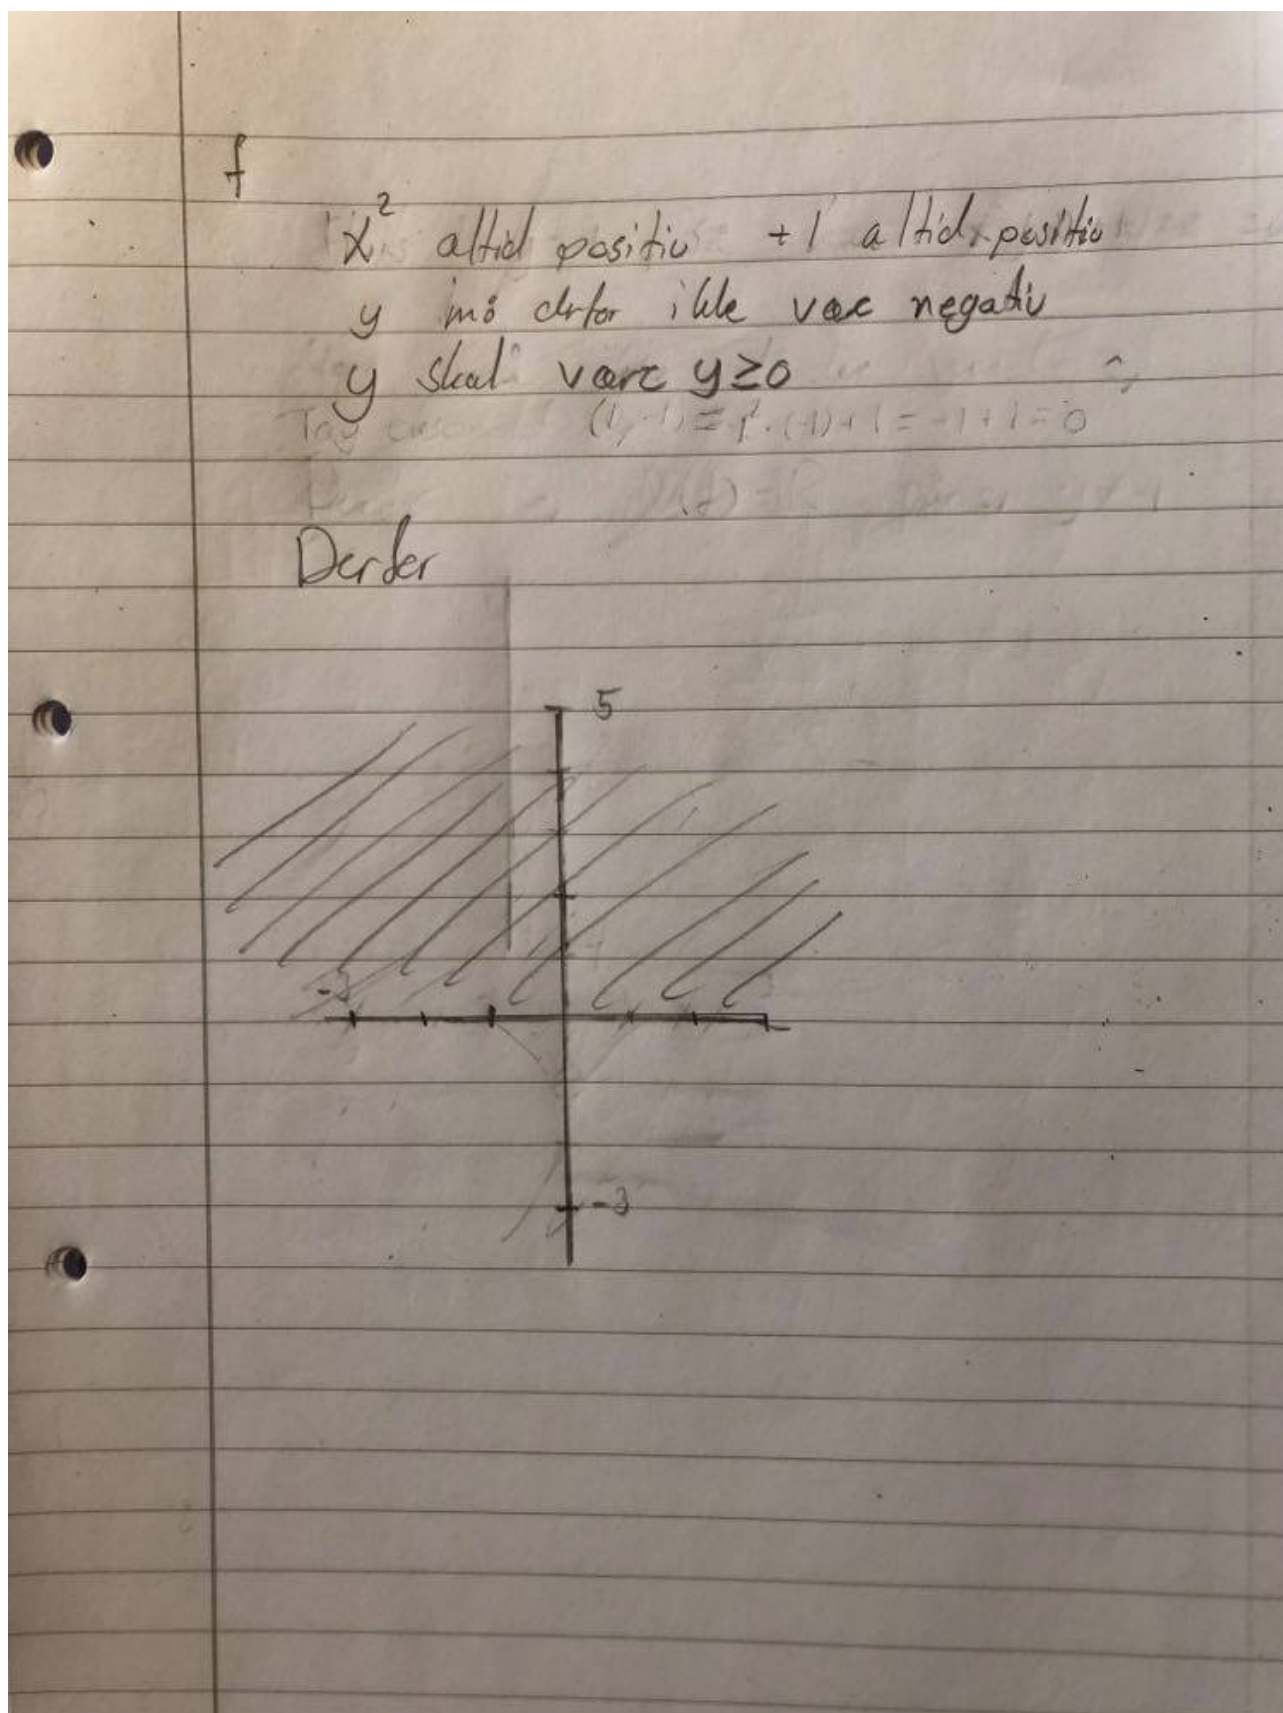 f
x² altid positiv +1 altid positiv
y må derfor ikke være negativ
y skal være y≥0
(1,-1) = 1²·(-1)+1 = -1+1=0
Derfor
5
-3
-3